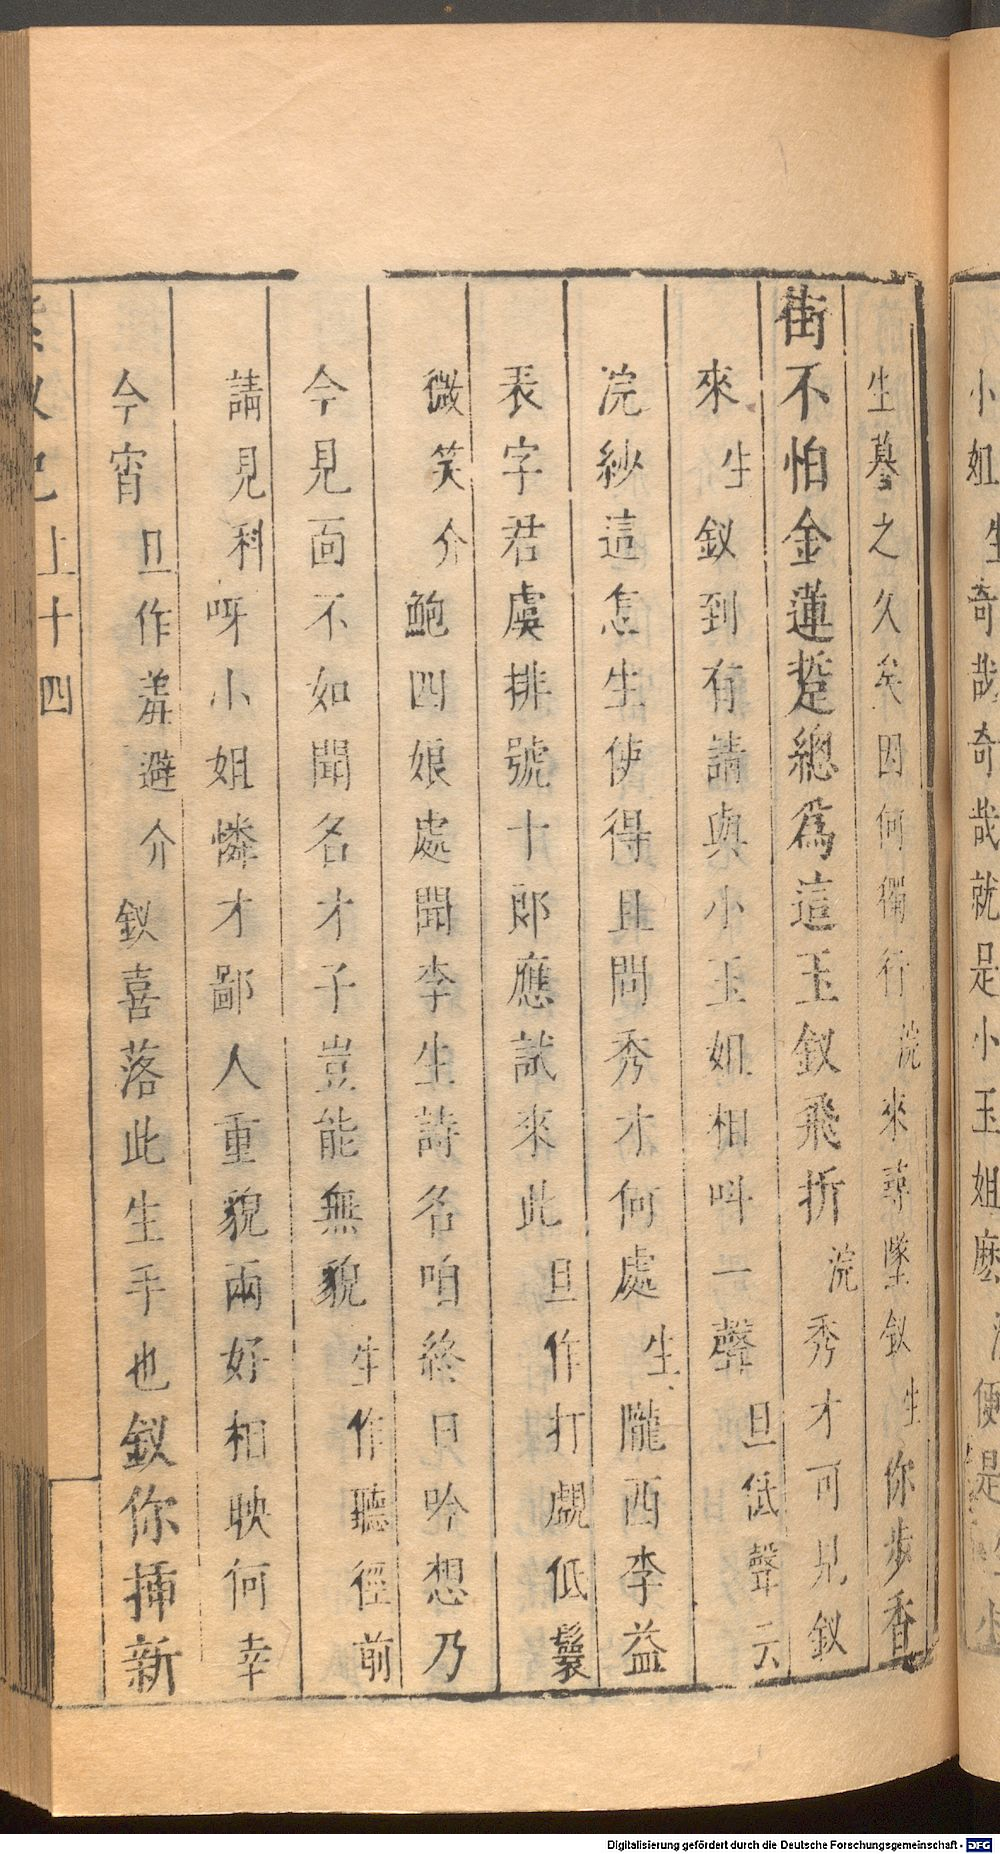 小姐生奇哉奇哉就是小玉姐麽浣便是
生慕之久矣因何獨行浣來尋墜釵生你步香
街不怕金蓮踅總爲這玉釵飛折浣秀才可見釵
來生釵到有請與小玉姐相叫一聲旦低聲云
浣紗這怎生使得且問秀才何處生隴西李益
表字君虞排號十郎應試來此旦作打覷低鬟
微笑介鮑四娘處聞李生詩名咱終日吟想乃
今見面不如聞名才子豈能無貌生作聽徑前
請見科呀小姐憐才鄙人重貌兩好相映何幸
今宵旦作羞避介釵喜落此生手也釵你揷新
紫釵記上十四
Digitalisierung gefördert durch die Deutsche Forschungsgemeinschaft - DFG